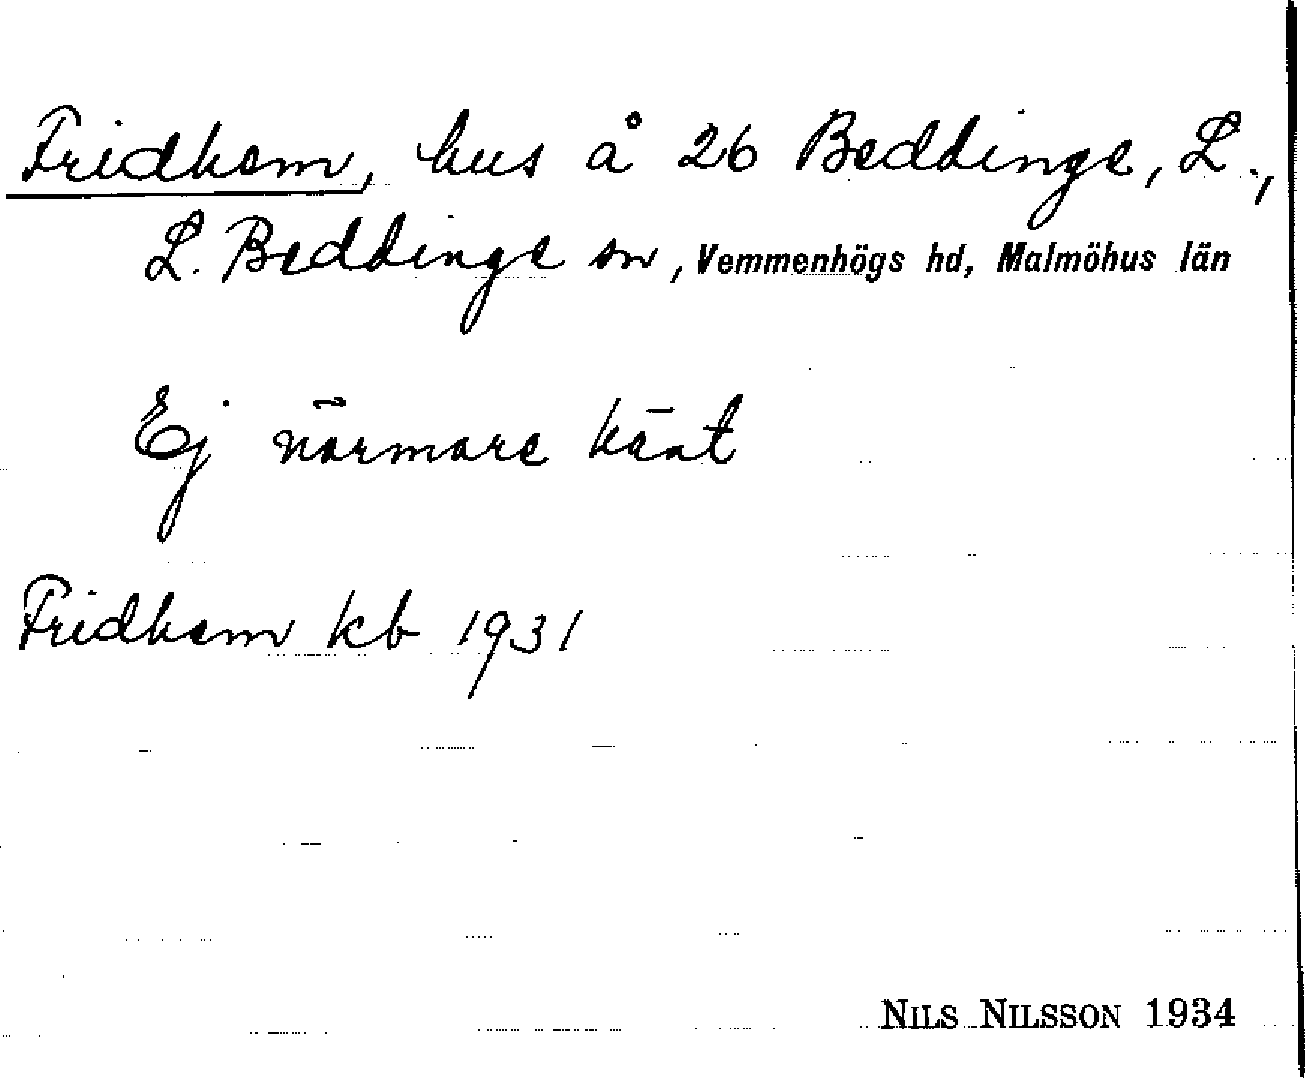 Fridhem, hus å 26 Beddinge, L.,
L. Beddinge sn, Vemmenhögs hd, Malmöhus län
Ej närmare känt
Fridhem kb 1931
NILS NILSSON 1934